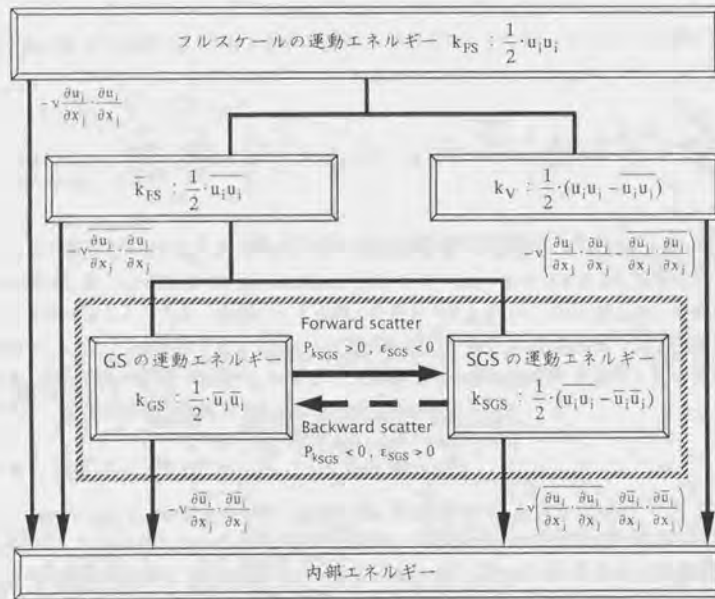 フルスケールの運動エネルギー k_FS : 1/2 · u_i u_i
− ν ∂u_i/∂x_j · ∂u_i/∂x_j
k̅_FS : 1/2 · \overline{u_i u_i}
k_V : 1/2 · (u_i u_i − \overline{u_i u_i})
− ν \overline{∂u_i/∂x_j · ∂u_i/∂x_j}
− ν(∂u_i/∂x_j · ∂u_i/∂x_j − \overline{∂u_i/∂x_j · ∂u_i/∂x_j})
Forward scatter
P_kSGS > 0 , ε_SGS < 0
GS の運動エネルギー
k_GS : 1/2 · u̅_i u̅_i
SGS の運動エネルギー
k_SGS : 1/2 · (\overline{u_i u_i} − u̅_i u̅_i)
Backward scatter
P_kSGS < 0 , ε_SGS > 0
− ν ∂u̅_i/∂x_j · ∂u̅_i/∂x_j
− ν(\overline{∂u_i/∂x_j · ∂u_i/∂x_j} − ∂u̅_i/∂x_j · ∂u̅_i/∂x_j)
内部エネルギー